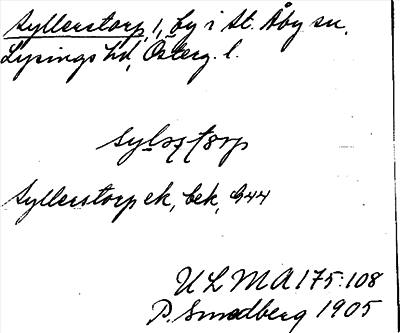 Syllerstorp, 1, by i St. Åby sn,
Lysings hd, Österg. l.
Syllerstorp ek, bek, G44
ULMA 175:108
P. Smedberg 1905